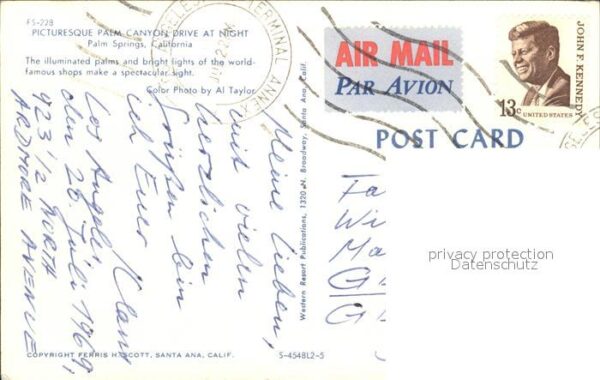 FS-228
PICTURESQUE PALM CANYON DRIVE AT NIGHT
Palm Springs, California
The illuminated palms and bright lights of the world-
famous shops make a spectacular sight.
Color Photo by Al Taylor
TERMINAL ANNEX
AIR MAIL
PAR AVION
JOHN F. KENNEDY
13c
UNITED STATES
POST CARD
Western Resort Publications, 1320 N. Broadway, Santa Ana, Calif.
Meine Lieben,
mit vielen
herzlichen
Grüßen bin
ich Euer
Klaus
Los Angeles,
den 26. Juli 1969,
423 1/2 NORTH
ARDMORE AVENUE
Fa
Wi
Ma
privacy protection
Datenschutz
COPYRIGHT FERRIS H. SCOTT, SANTA ANA, CALIF.
S-4548L2-5